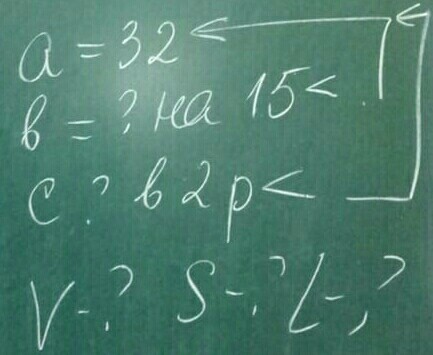 a = 32
b = ? на 15 <
c ? в 2 р <
V - ? S - ? L - ?